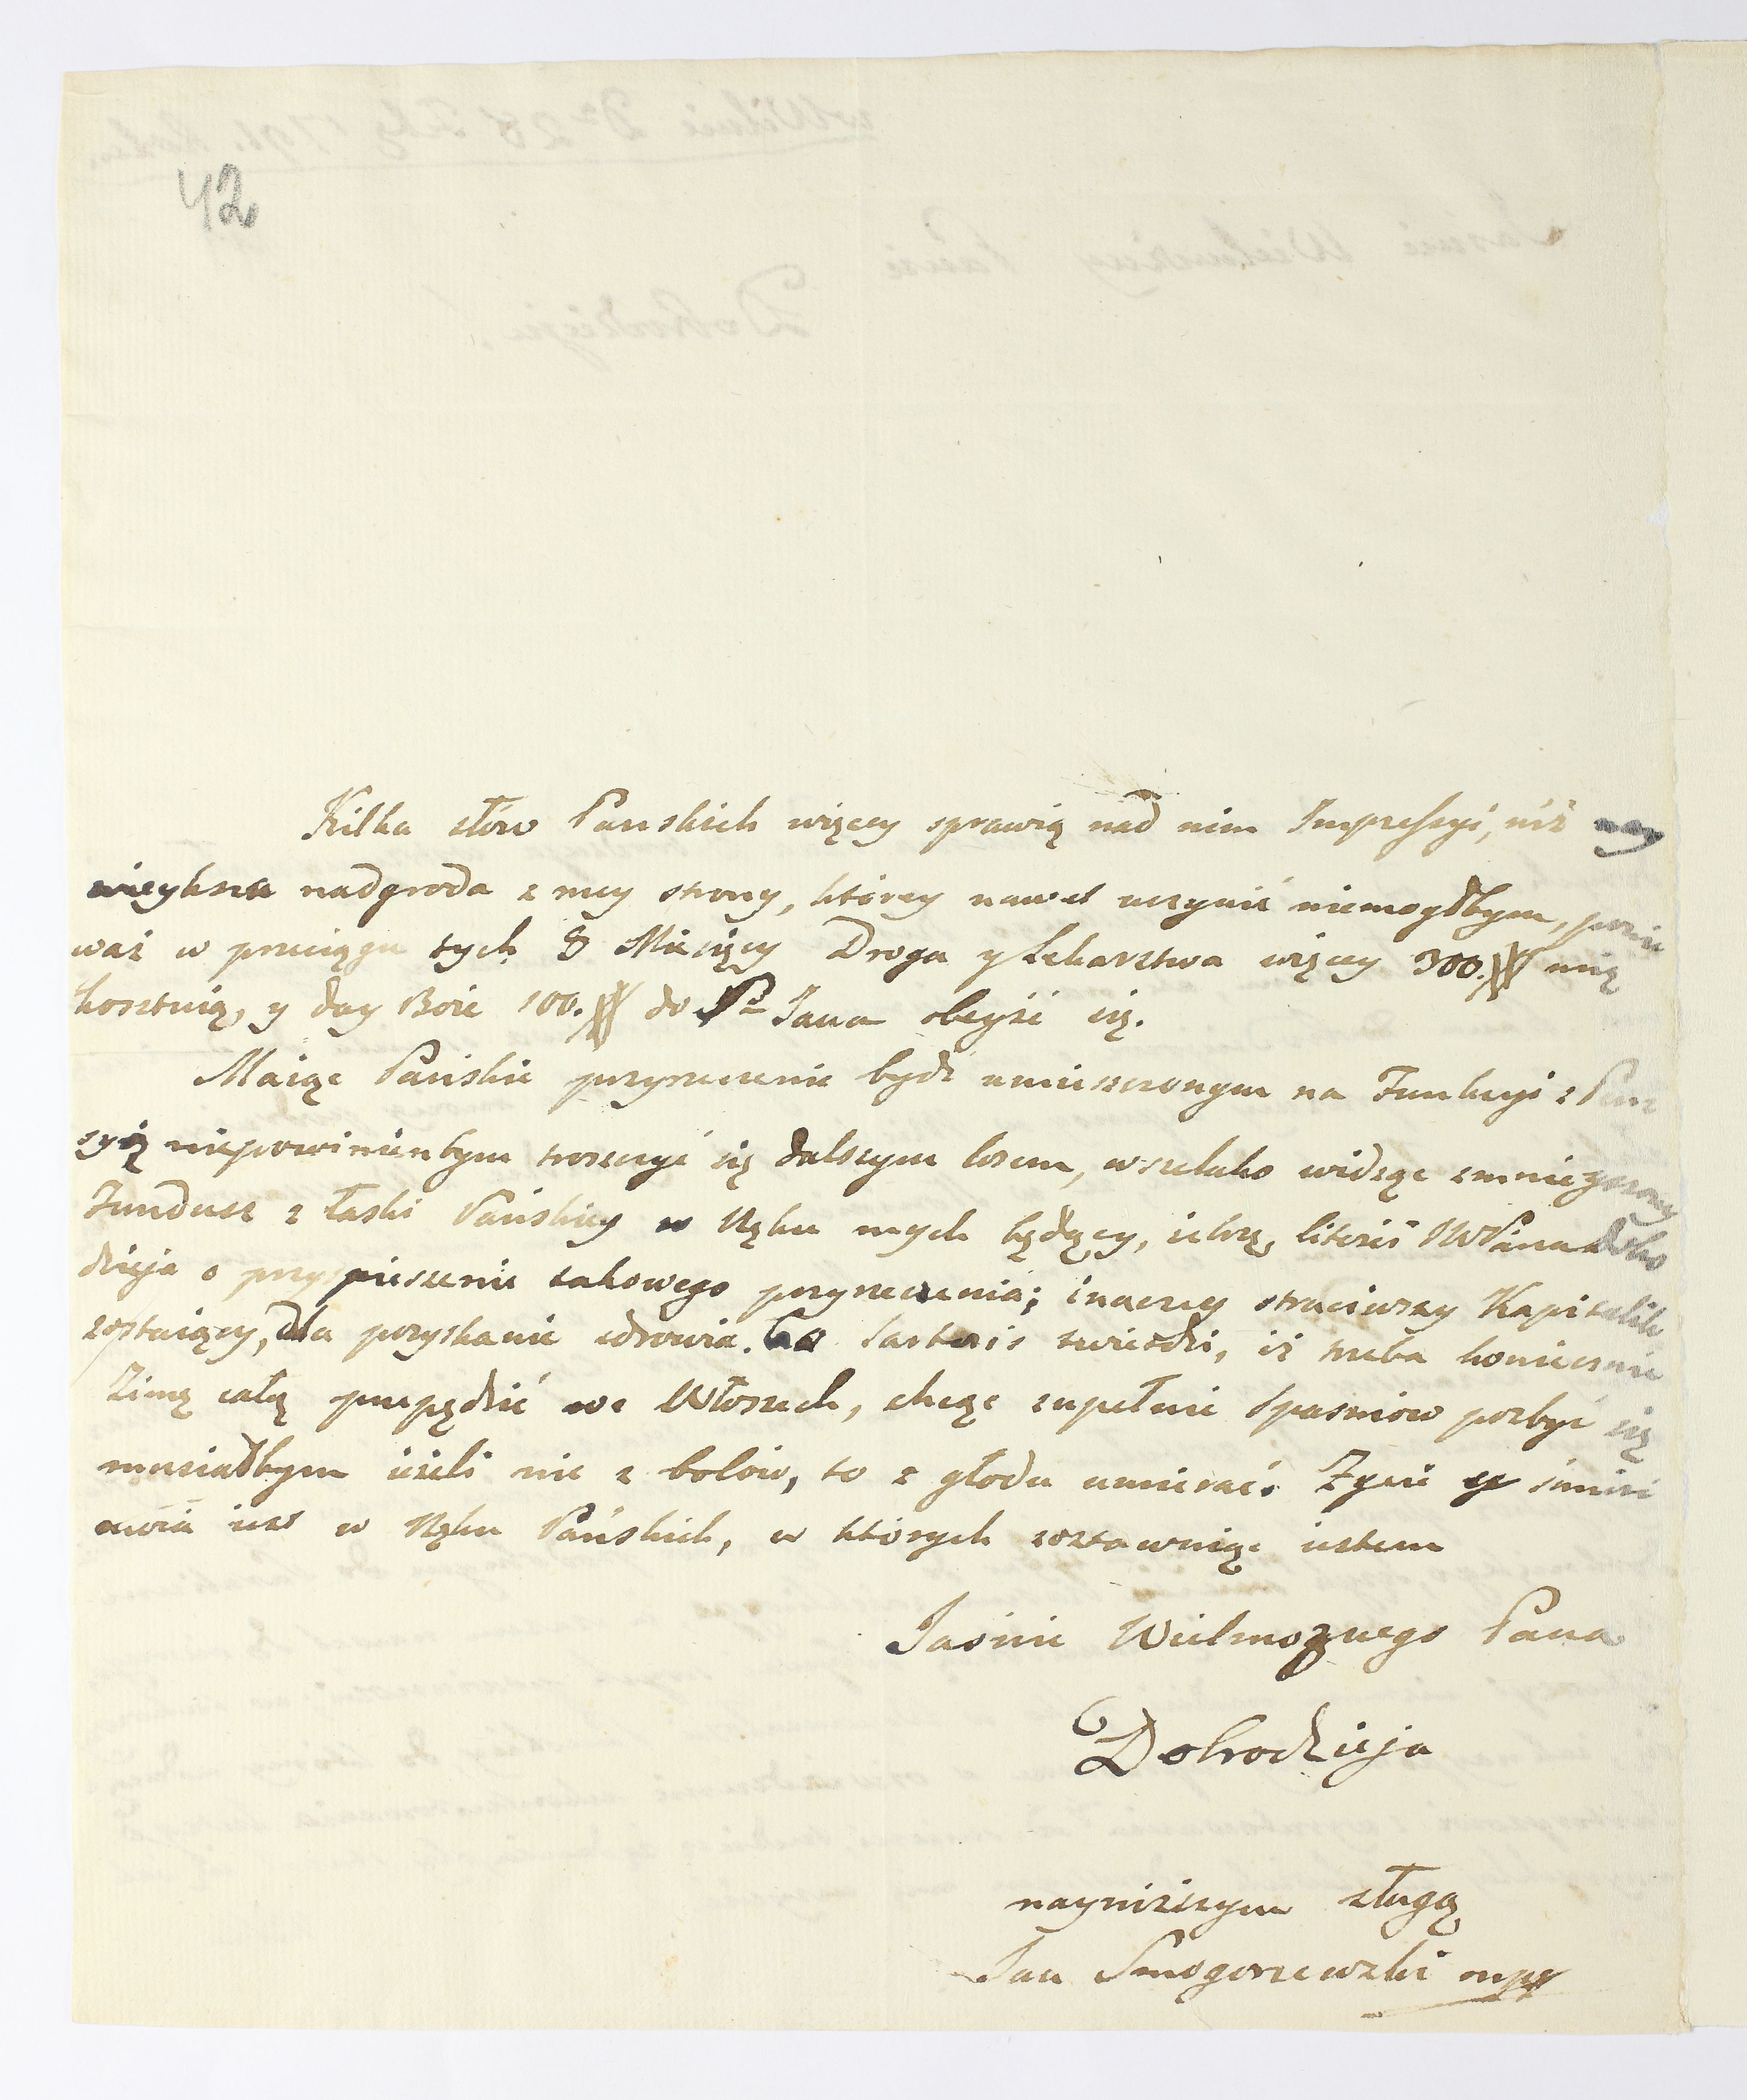 42
Kilka słów Panskich więcey sprawią nad nim Impressyi, niż nay
wieyksza nadgroda z mey strony, którey nawet uczynić niemogłbym, ponie
waż w przeciągu tych 8 Miesięcy Droga y Lekarstwa więcey 300. mię
kosztuią, y day Boże 100. do Sº Jana obeyść się.
Maiąc Pańskie przyrzeczenie bydź umieszczonym na Funkcyi z Pen
syią niepowinienbym troszczyć się dalszym losem, wszelako widząc zmnieyszony
Fundusz z łaski Pańskiey w Ręku mych będący, żebrzę litości JWPana Dobro
dzieja o przyspieszenie takowego przyrzeczenia; inaczey straciwszy Kapitalik
zostaiący, dla pozyskanie zdrowia. twierdzi, iż trzeba koniecznie
Zimę całą przepędzić we Włoszech, chcąc zupełnie Spasmow pozbyć się
musiałbym ieżeli nie z bolów, to z głodu umierać. Zycie y śmierć
moia iest w Ręku Pańskich, w których zostawuiąc iestem
Jaśnie Wielmoznego Pana
Dobrodzieja
nayniższym sługą
Jan Smogorzewski mpp